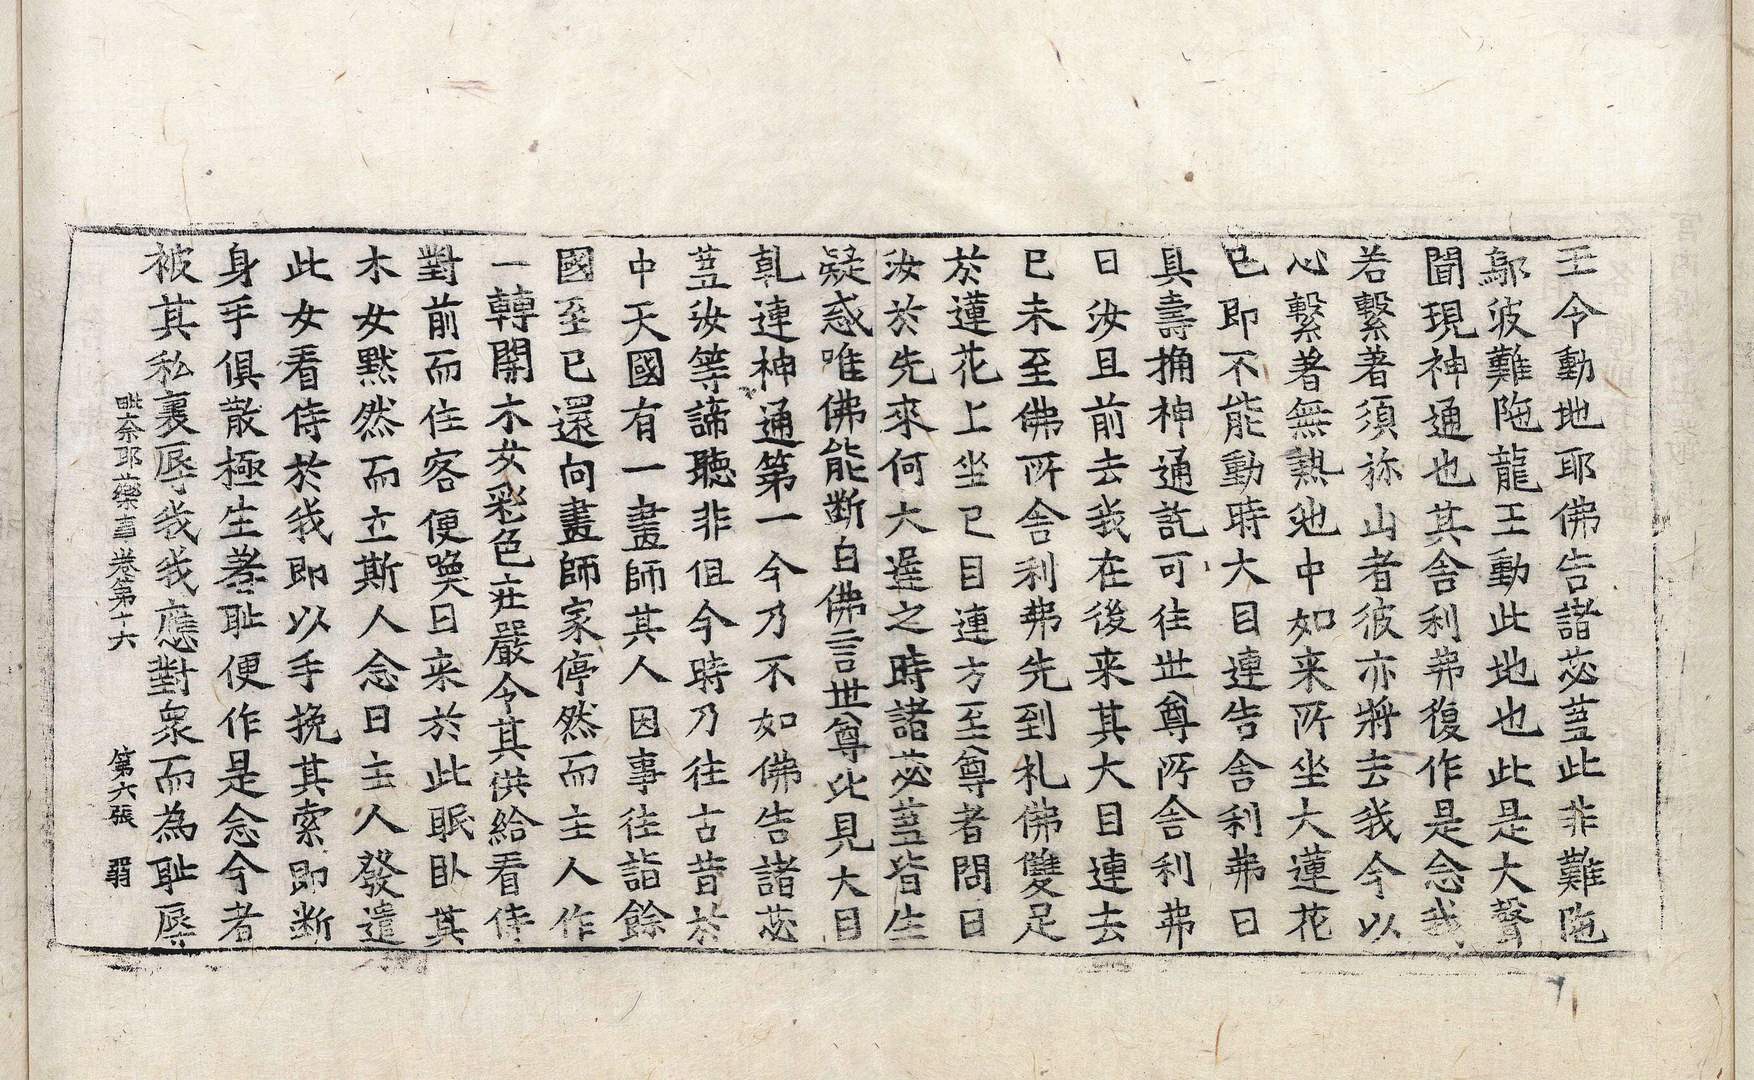 王今動地耶佛告諸苾芻此非難陁
鄔波難陁龍王動此地也此是大聲
聞現神通也其舍利弗復作是念我
若繫著須弥山者彼亦將去我今以
心繫著無熱池中如来所坐大蓮花
已即不能動時大目連告舍利弗曰
具壽捔神通訖可往世尊所舍利弗
曰汝且前去我在後来其大目連去
已未至佛所舍利弗先到礼佛雙足
於蓮花上坐已目連方至尊者問曰
汝於先來何大遲之時諸苾芻皆生
疑惑唯佛能斷白佛言世尊此見大目
乾連神通第一今乃不如佛告諸苾
芻汝等諦聽非但今時乃往古昔於
中天國有一畫師其人因事往詣餘
國至已還向畫師家停然而主人作
一轉關木女彩色莊嚴令其供給看侍
對前而住客便喚曰来於此眠卧其
木女黙然而立斯人念曰主人發遣
此女看侍於我即以手挽其索即断
身手俱散極生羞耻便作是念今者
被其私裏辱我我應對衆而為耻辱
毗奈耶藥事卷第十六　第六張　羽